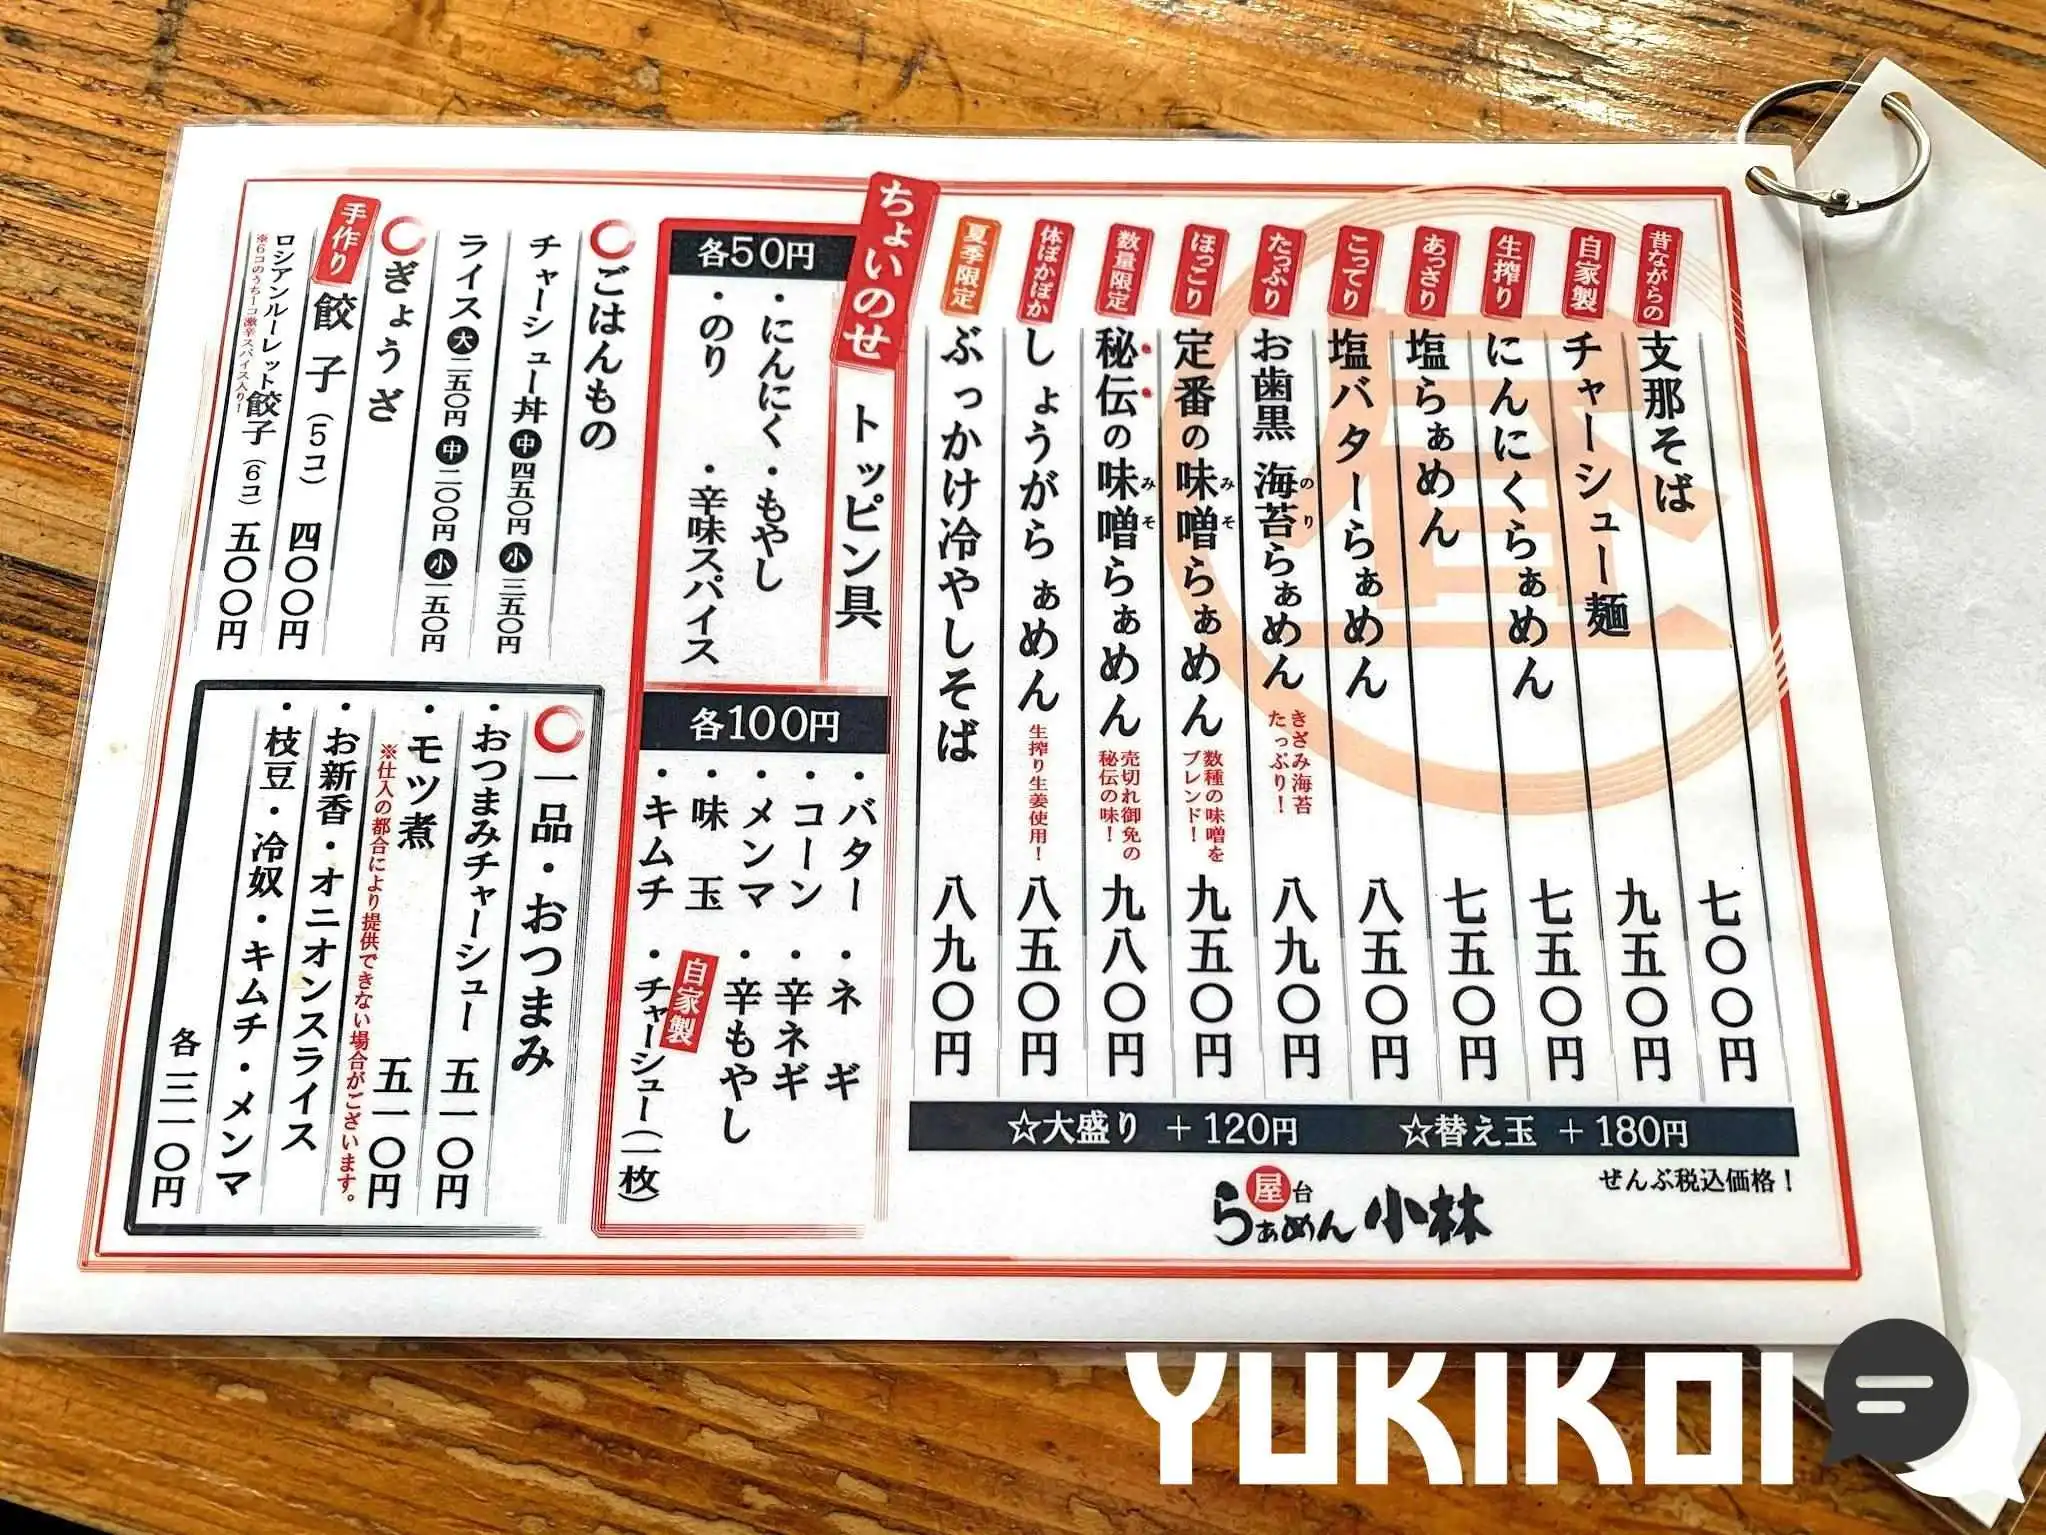 昼
昔ながらの 支那そば 七〇〇円
自家製 チャーシュー麺 九五〇円
生搾り にんにくらぁめん 七五〇円
あっさり 塩らぁめん 七五〇円
こってり 塩バターらぁめん 八五〇円
たっぷり お歯黒 海苔らぁめん 八九〇円
のり
きざみ海苔
たっぷり!
ほっこり 定番の味噌らぁめん 九五〇円
みそ
数種の味噌を
ブレンド!
数量限定 秘伝の味噌らぁめん 九八〇円
みそ
売切れ御免の
秘伝の味!
体ぽかぽか しょうがらぁめん 生搾り生姜使用! 八五〇円
夏季限定 ぶっかけ冷やしそば 八九〇円
☆大盛り +120円 ☆替え玉 +180円
ぜんぶ税込価格!
屋台
らぁめん 小林
ちょいのせ トッピン具
各50円
・にんにく ・もやし
・のり ・辛味スパイス
各100円
・バター ・ネギ
・コーン ・辛ネギ
・メンマ ・辛もやし
・味玉 自家製
・キムチ ・チャーシュー(一枚)
〇ごはんもの
チャーシュー丼 中 四五〇円 小 三五〇円
ライス 大 二五〇円 中 二〇〇円 小 一五〇円
〇ぎょうざ
手作り 餃子(5コ) 四〇〇円
ロシアンルーレット餃子(6コ) 五〇〇円
※6コのうち一コ激辛スパイス入り!
〇一品・おつまみ
・おつまみチャーシュー 五一〇円
・モツ煮 五一〇円
※仕入の都合により提供できない場合がございます。
・お新香・オニオンスライス
・枝豆・冷奴・キムチ・メンマ
各三一〇円
YUKIKOI